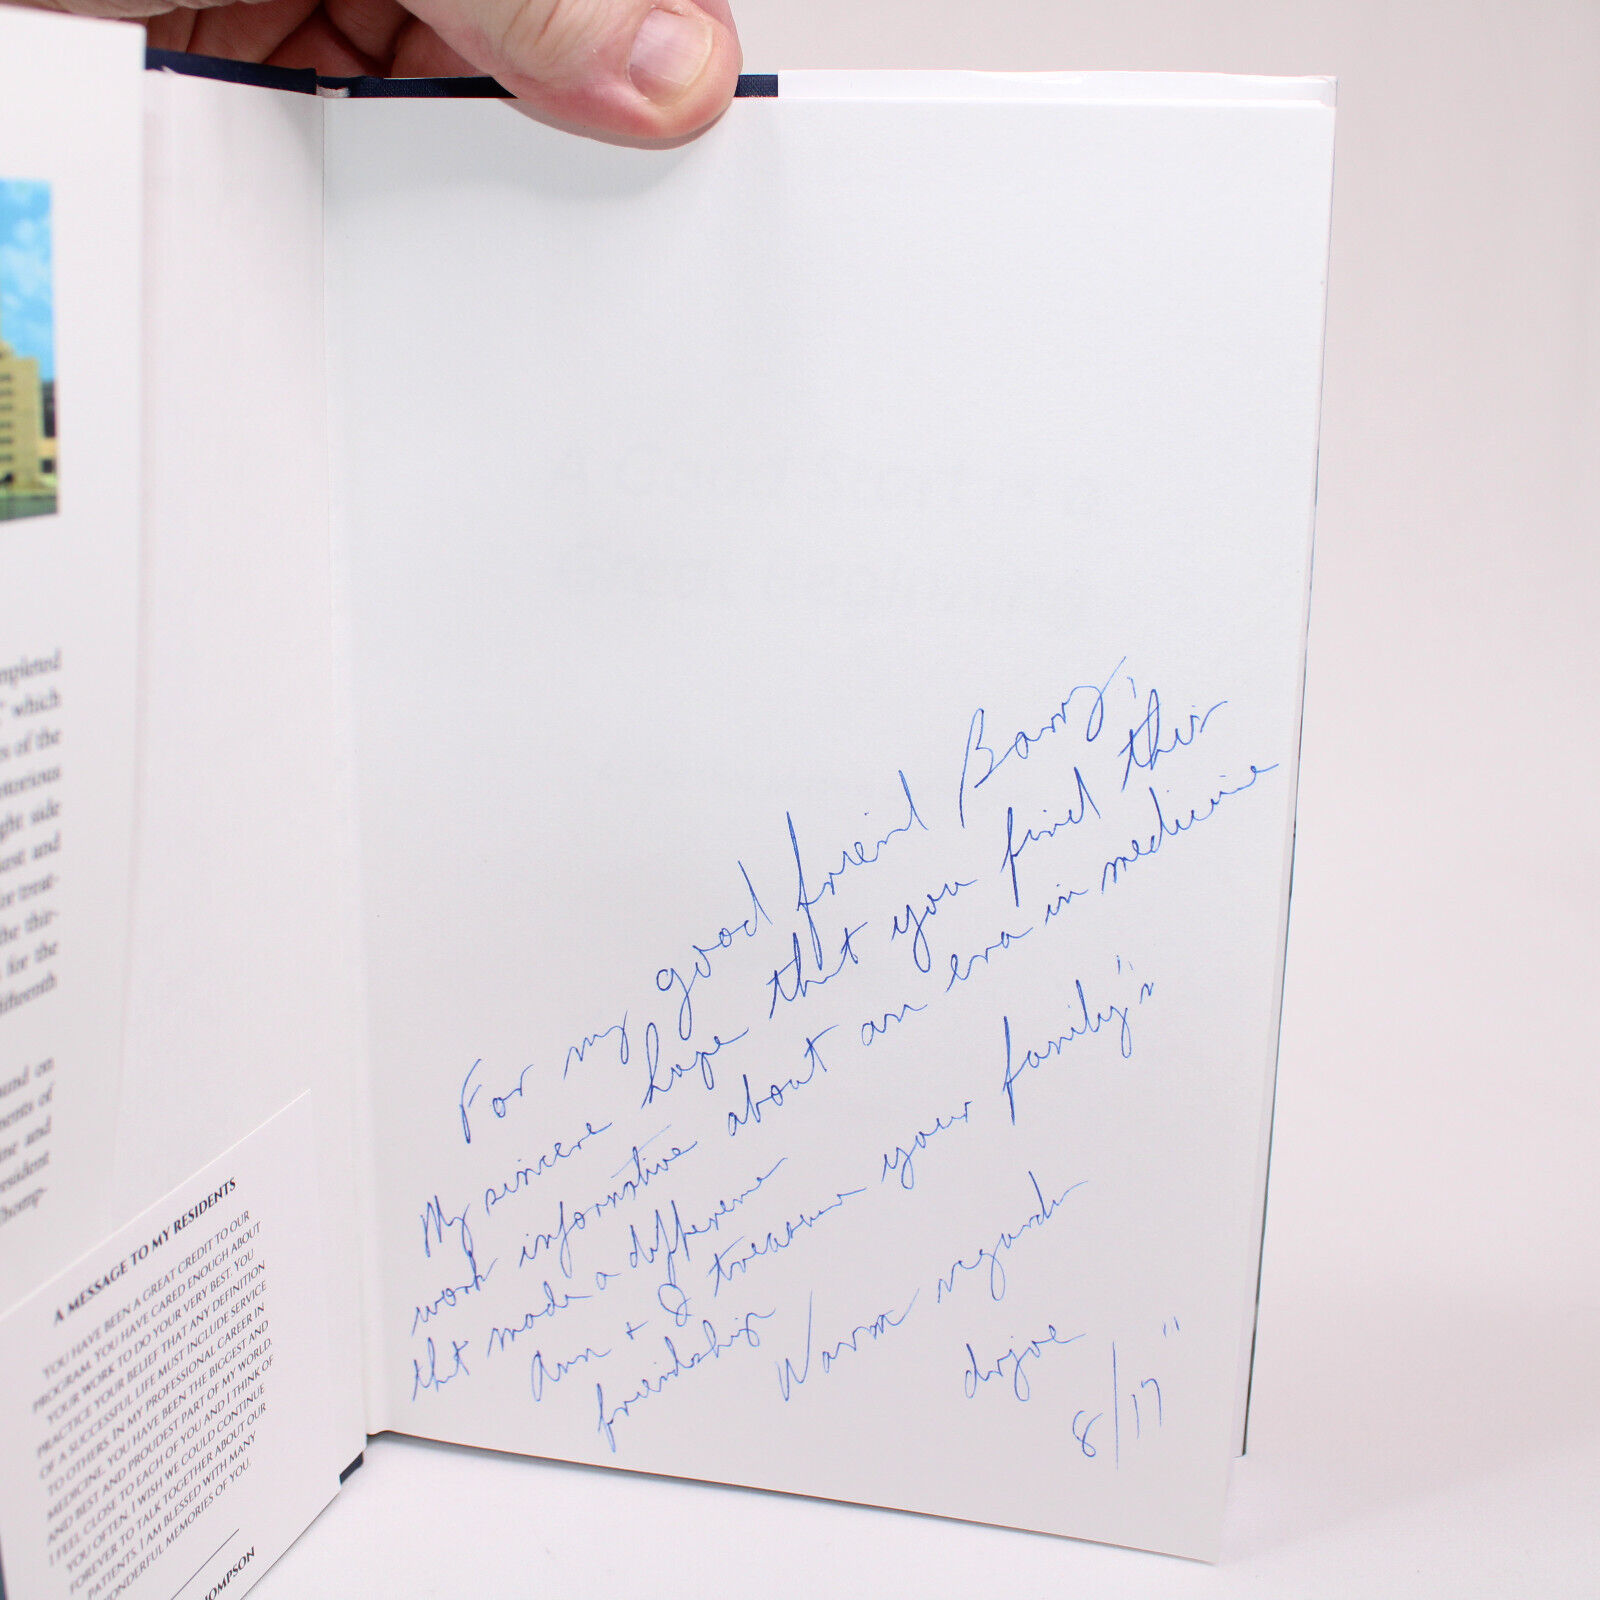 mpleted
" which
rs of the
notorious
ght side
urst and
or treat-
the thir-
s for the
ifteenth
ound on
ments of
ine and
resident
Thomp-
A MESSAGE TO MY RESIDENTS
YOU HAVE BEEN A GREAT CREDIT TO OUR
PROGRAM. YOU HAVE CARED ENOUGH ABOUT
YOUR WORK TO DO YOUR VERY BEST. YOU
PRACTICE YOUR BELIEF THAT ANY DEFINITION
OF A SUCCESSFUL LIFE MUST INCLUDE SERVICE
TO OTHERS. IN MY PROFESSIONAL CAREER IN
MEDICINE, YOU HAVE BEEN THE BIGGEST AND
AND BEST AND PROUDEST PART OF MY WORLD.
I FEEL CLOSE TO EACH OF YOU AND I THINK OF
YOU OFTEN. I WISH WE COULD CONTINUE
FOREVER TO TALK TOGETHER ABOUT OUR
PATIENTS. I AM BLESSED WITH MANY
WONDERFUL MEMORIES OF YOU.
HOMPSON
For my good friend Barry,
My sincere hope that you find this
work informative about an era in medicine
that made a difference
Ann + I treasure your family's
friendship
Warm regards
drjoe
8/17/11